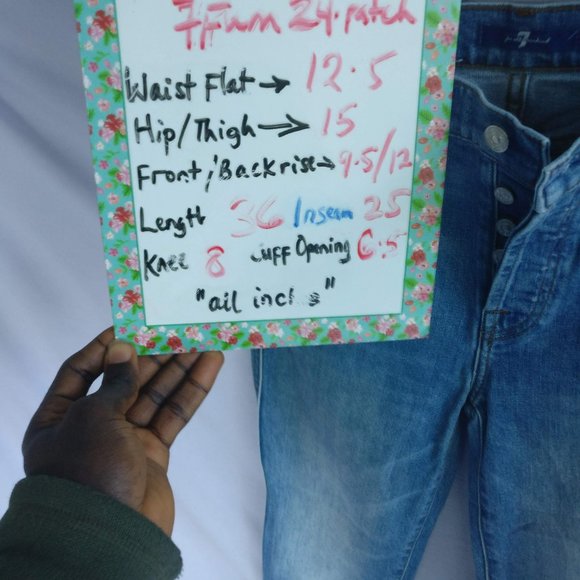 7Fam 24. patch
Waist Flat → 12.5
Hip/Thigh → 15
Front/Back rise → 9.5/12
Length 36 Inseam 25
Knee 8 Cuff Opening 6.5
"all inches"
7